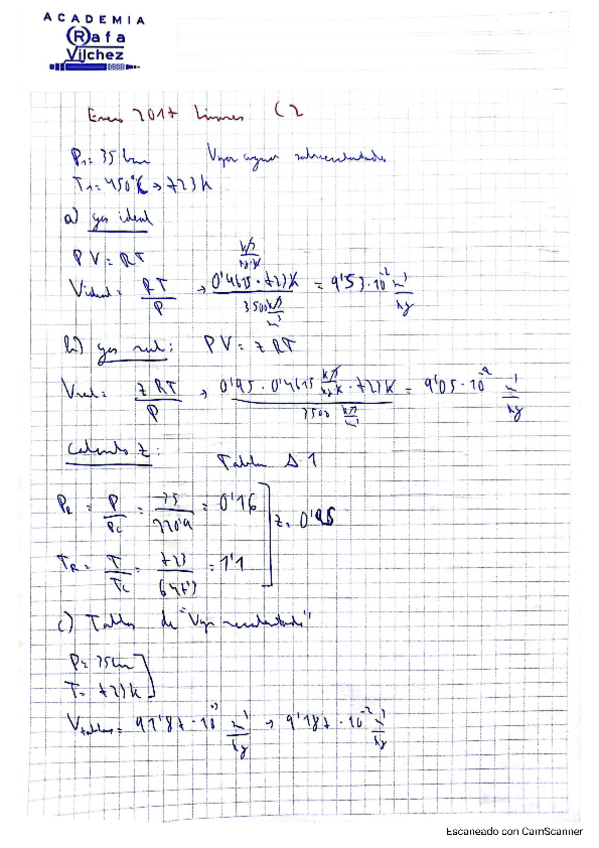 ACADEMIA
Rafa
Vilchez
Enero 2017 Linares C2
P1 = 35 bar Vapor agua sobrecalentado
T1 = 450°C → 723K
a) gas ideal
PV = RT
Videal = RT/P → 0'4615 kJ/kg·K · 723K / 3500 kJ/m³ = 9'53·10⁻² m³/kg
b) gas real: PV = zRT
Vreal = zRT/P → 0'95 · 0'4615 kJ/kg K · 723K / 3500 kJ/m³ = 9'05·10⁻² m³/kg
Calculo z: Tabla A.1
PR = P/Pc = 35/220'9 = 0'16
z = 0'95
TR = T/Tc = 723/647'3 = 1'1
c) Tablas de "Vapor recalentado"
P = 35 bar
T = 723K
Vtablas = 91'87·10⁻³ m³/kg → 9'187·10⁻² m³/kg
Escaneado con CamScanner